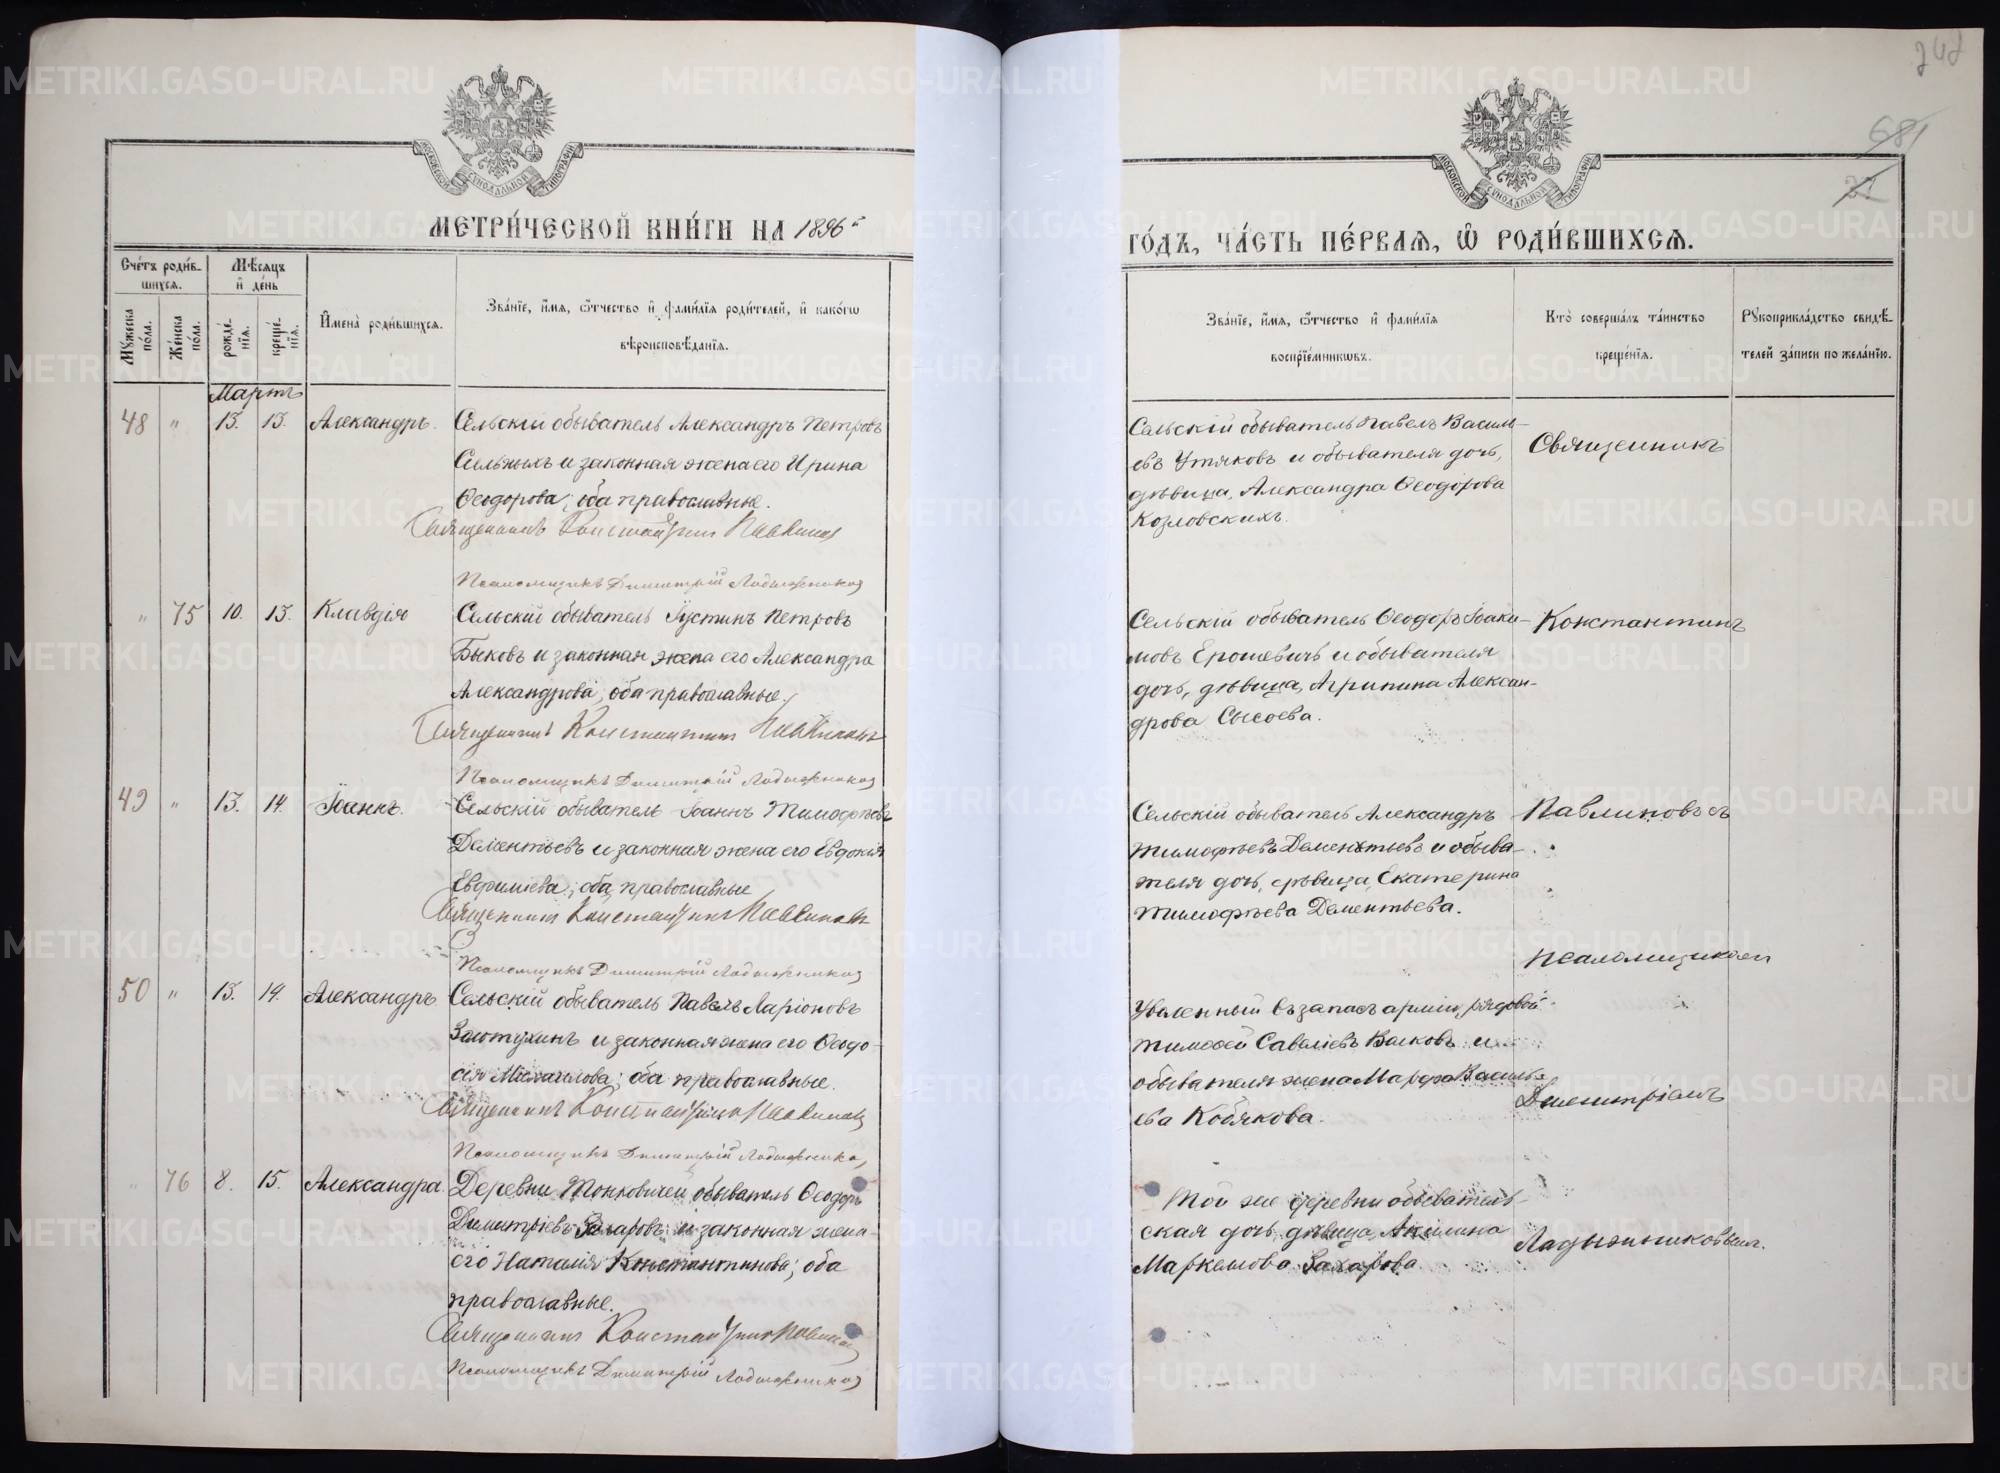 242
681
МОСКОВСКОЙ СѴНОДАЛЬНОЙ ТИПОГРАФІИ
МОСКОВСКОЙ СѴНОДАЛЬНОЙ ТИПОГРАФІИ
МЕТРИ́ЧЕСКОЙ КНИ́ГИ НА 1896й
ГО́ДЪ, ЧА́СТЬ ПЕ́РВАЯ, Ѡ РОДИ́ВШИХСЯ.
Сче́тъ роди́в-
шихся.
Мѣ́сяцъ
и де́нь
Му́жеска по́ла.
Же́нска по́ла.
рожде́нїя.
креще́нїя.
И҆мена̀ роди́вшихся.
Зва́нїе, и҆́мя, ѻ҆́тчество и҆ фами́лїя роди́телей, и҆ како́гѡ
вѣроисповѣ́данїя.
Зва́нїе, и҆́мя, ѻ҆́тчество и҆ фами́лїя
воспрїе́мникѡвъ.
Кто̀ соверша́лъ та́инство
креще́нїя.
Рукоприкла́дство свидѣ́-
телей за́писи по жела́нїю.
Мартъ
48 " 13. 13. Александръ.
Сельскій обыватель Александръ Петровъ
и законная жена его Ирина
Ѳеодорова; оба православные.
Священникъ Константинъ Павлиновъ
Псаломщикъ Димитрій Ладыжниковъ
Сельскій обыватель Павелъ Василь-
евъ Утяковъ и обывателя дочь,
дѣвица, Александра Ѳеодорова
Козловскихъ.
Священникъ
" 75 10. 13. Клавдія
Сельскій обыватель Іустинъ Петровъ
Быковъ и законная жена его Александра
Александрова; оба православные.
Священникъ Константинъ Павлиновъ
Псаломщикъ Димитрій Ладыжниковъ
Сельскій обыватель Ѳеодоръ Іоаки-
мовъ Ерошевичъ и обывателя
дочь, дѣвица, Агрипина Алексан-
дрова Сысоева.
Константинъ
49 " 13. 14. Іоаннъ.
Сельскій обыватель Іоаннъ Тимофѣевъ
Дементьевъ и законная жена его Евдокія
Евфиміева; оба православные
Священникъ Константинъ Павлиновъ
Псаломщикъ Димитрій Ладыжниковъ
Сельскій обыватель Александръ
Тимофѣевъ Дементьевъ и обыва-
теля дочь, дѣвица, Екатерина
Тимофѣева Дементьева.
Павлиновъ съ
псаломщикомъ
50 " 13. 14. Александръ.
Сельскій обыватель Павелъ Ларіоновъ
Золотухинъ и законная жена его Ѳеодо-
сія Михаилова; оба православные.
Священникъ Константинъ Павлиновъ
Псаломщикъ Димитрій Ладыжниковъ
Уволенный въ запасъ арміи, рядовой
Тимоѳей Савеліевъ и
обывателя жена Марфа Василь-
ева Кобякова.
Димитріемъ
" 76 8. 15. Александра.
Деревни Тонковичей обыватель Ѳеодоръ
Димитріевъ Захаровъ и законная жена
его Наталія Константинова; оба
православные.
Священникъ Константинъ Павлиновъ
Псаломщикъ Димитрій Ладыжниковъ
Той же деревни обыватель-
ская дочь дѣвица, Акилина
Маркелова Захарова
Ладыжниковымъ.
METRIKI.GASO-URAL.RU